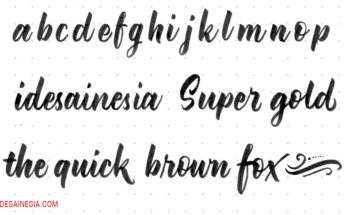 a b c d e f g h i j k l m n o p
idesainesia Super gold
the quick brown fox
DESAINESIA.COM